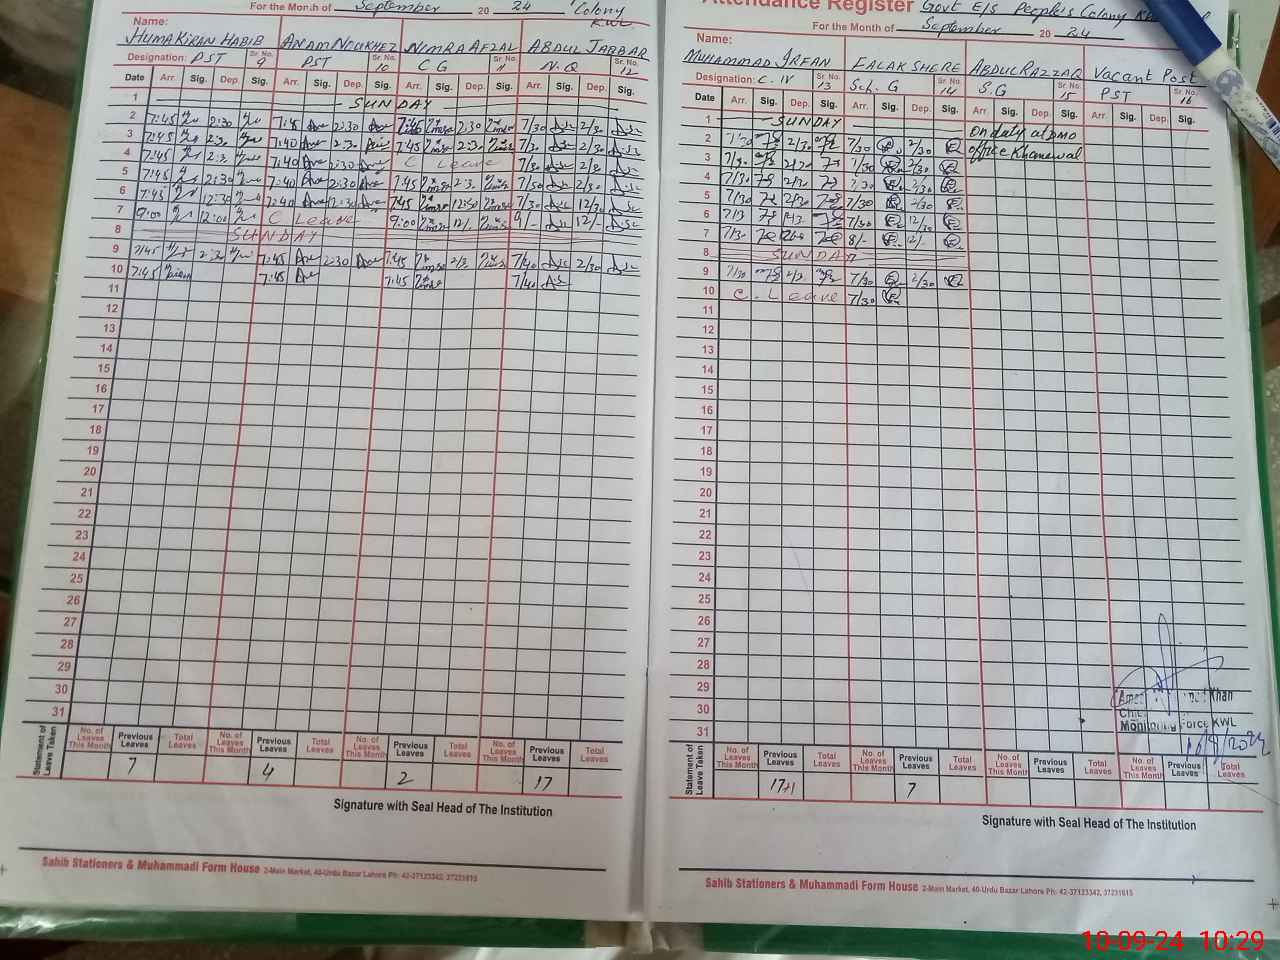 For the Month of September 20 24 Colony
KWL
Name:
HUMA KIRAN HABIB ANAM NOUKHEZ NIMRA AFZAL ABDUL JABBAR
Designation: PST Sr. No. 9 PST Sr. No. 10 C G Sr. No. 11 N.Q Sr. No. 12
Date Arr. Sig. Dep. Sig. Arr. Sig. Dep. Sig. Arr. Sig. Dep. Sig. Arr. Sig. Dep. Sig.
1 SUNDAY
2 7:45 2:30 7:45 2:30 7:45 2:30 7/30 2/30
3 7:45 2:30 7:40 2:30 7:45 2:30 7/30 2/30
4 7:45 2:30 7:40 2:30 C Leave 7/30 2/30
5 7:45 2:30 7:40 2:30 7:45 2:30 7/30 2/30
6 7:45 12:30 7:40 12:30 7:45 12:30 7/30 12/30
7 9:00 12:00 C Leave 9:00 12/- 9/- 12/-
8 SUNDAY
9 7:45 2:30 7:45 2:30 7:45 2/30 7/40 2/30
10 7:45 7:45 7:45 7/40
11
12
13
14
15
16
17
18
19
20
21
22
23
24
25
26
27
28
29
30
31
Statement of Leave Taken No. of Leaves This Month Previous Leaves Total Leaves No. of Leaves This Month Previous Leaves Total Leaves No. of Leaves This Month Previous Leaves Total Leaves No. of Leaves This Month Previous Leaves Total Leaves
7 4 2 17
Signature with Seal Head of The Institution
Sahib Stationers & Muhammadi Form House 2-Main Market, 40-Urdu Bazar Lahore Ph: 42-37123342, 37231615
Attendance Register Govt E/S People's Colony
For the Month of September 20 24
Name:
MUHAMMAD IRFAN FALAK SHERE ABDUL RAZZAQ Vacant Post
Designation: C. IV Sr. No. 13 Sch. G Sr. No. 14 S.G Sr. No. 15 PST Sr. No. 16
Date Arr. Sig. Dep. Sig. Arr. Sig. Dep. Sig. Arr. Sig. Dep. Sig. Arr. Sig. Dep. Sig.
1 SUNDAY On duty at DMO
2 7/30 2/30 7/30 2/30 office Khanewal
3 7/30 2/30 7/30 2/30
4 7/30 2/30 7/30 2/30
5 7/30 2/30 7/30 2/30
6 7/30 7/30 12/30
7 7/30 8/- 12/-
8 SUNDAY
9 7/30 2/30 7/30 2/30
10 C. Leave 7/30
11
12
13
14
15
16
17
18
19
20
21
22
23
24
25
26
27
28
29
30
31
Khan
Monitoring Force KWL
Statement of Leave Taken No. of Leaves This Month Previous Leaves Total Leaves No. of Leaves This Month Previous Leaves Total Leaves No. of Leaves This Month Previous Leaves Total Leaves No. of Leaves This Month Previous Leaves Total Leaves
17+1 7
Signature with Seal Head of The Institution
Sahib Stationers & Muhammadi Form House 2-Main Market, 40-Urdu Bazar Lahore Ph: 42-37123342, 37231615
10-09-24 10:29